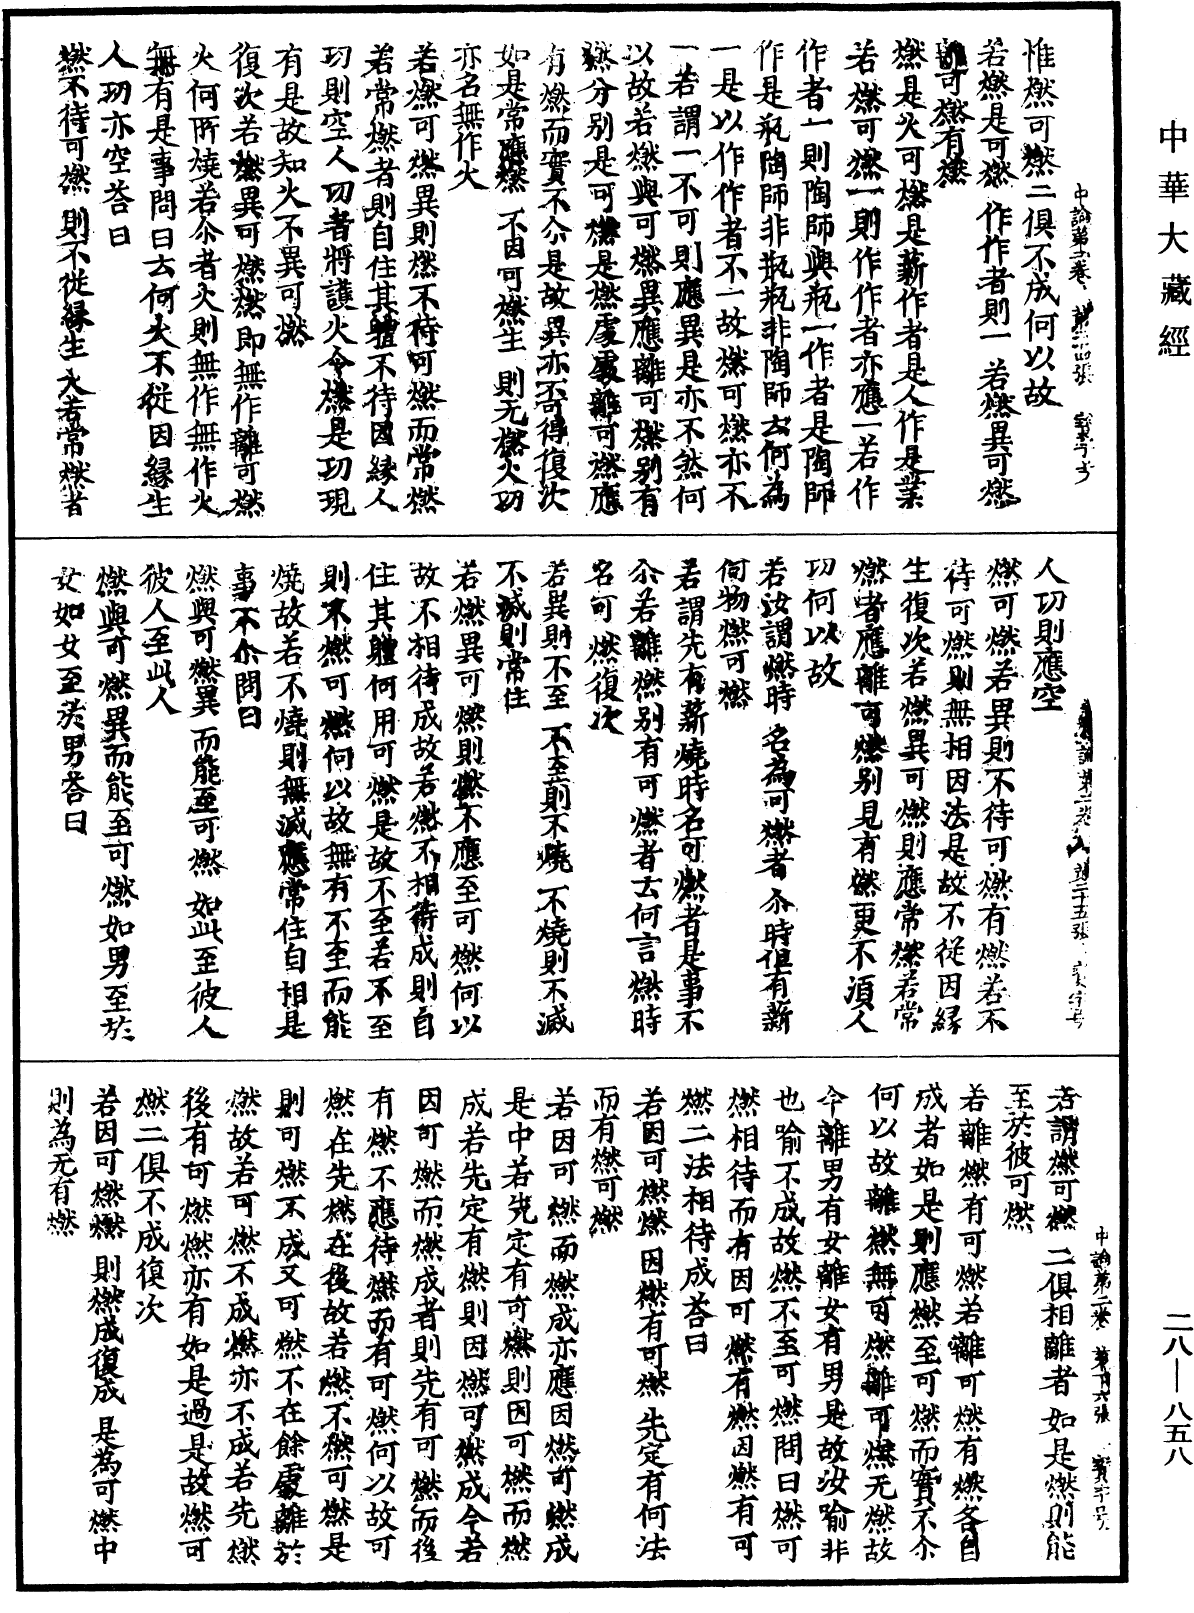 中華大藏經
惟燃可燃二俱不成何以故
若燃是可燃 作作者則一 若燃異可燃
離可燃有燃
燃是火可燃是薪作者是人作是業
若燃可燃一則作作者亦應一若作
作者一則陶師與瓶一作者是陶師
作是瓶陶師非瓶瓶非陶師云何為
一是以作作者不一故燃可燃亦不
一若謂一不可則應異是亦不然何
以故若燃與可燃異應離可燃别有
燃分别是可燃是燃處處離可燃應
有燃而實不尒是故異亦不可得復次
如是常應燃 不因可燃生 則无燃火功
亦名無作火
若燃可燃異則燃不待可燃而常燃
若常燃者則自住其體不待因緣人
功則空人功者將護火令燃是功現
有是故知火不異可燃
復次若燃異可燃燃即無作離可燃
火何所燒若尒者火則無作無作火
無有是事問曰云何火不從因緣生
人功亦空荅曰
燃不待可燃 則不從緣生 火若常燃者
人功則應空
燃可燃若異則不待可燃有燃若不
待可燃則無相因法是故不從因緣
生復次若燃異可燃則應常燃若常
燃者應離可燃别見有燃更不須人
功何以故
若汝謂燃時 名為可燃者 尒時但有薪
何物燃可燃
若謂先有薪燒時名可燃者是事不
尒若離燃别有可燃者云何言燃時
名可燃復次
若異則不至 不至則不燒 不燒則不滅
不滅則常住
若燃異可燃則燃不應至可燃何以
故不相待成故若燃不相待成則自
住其體何用可燃是故不至若不至
則不燃可燃何以故無有不至而能
燒故若不燒則無滅應常住自相是
事不尒問曰
燃與可燃異 而能至可燃 如此至彼人
彼人至此人
燃與可燃異而能至可燃如男至於
女如女至於男荅曰
若謂燃可燃 二俱相離者 如是燃則能
至於彼可燃
若離燃有可燃若離可燃有燃各自
成者如是則應燃至可燃而實不尒
何以故離燃無可燃離可燃无燃故
今離男有女離女有男是故汝喻非
也喻不成故燃不至可燃問曰燃可
燃相待而有因可燃有燃因燃有可
燃二法相待成荅曰
若因可燃燃 因燃有可燃 先定有何法
而有燃可燃
若因可燃而燃成亦應因燃可燃成
是中若先定有可燃則因可燃而燃
成若先定有燃則因燃可燃成今若
因可燃而燃成者則先有可燃而後
有燃不應待燃而有可燃何以故可
燃在先燃在後故若燃不燃可燃是
則可燃不成又可燃不在餘處離於
燃故若可燃不成燃亦不成若先燃
後有可燃燃亦有如是過是故燃可
燃二俱不成復次
若因可燃燃 則燃成復成 是為可燃中
則為无有燃
二八—八五八